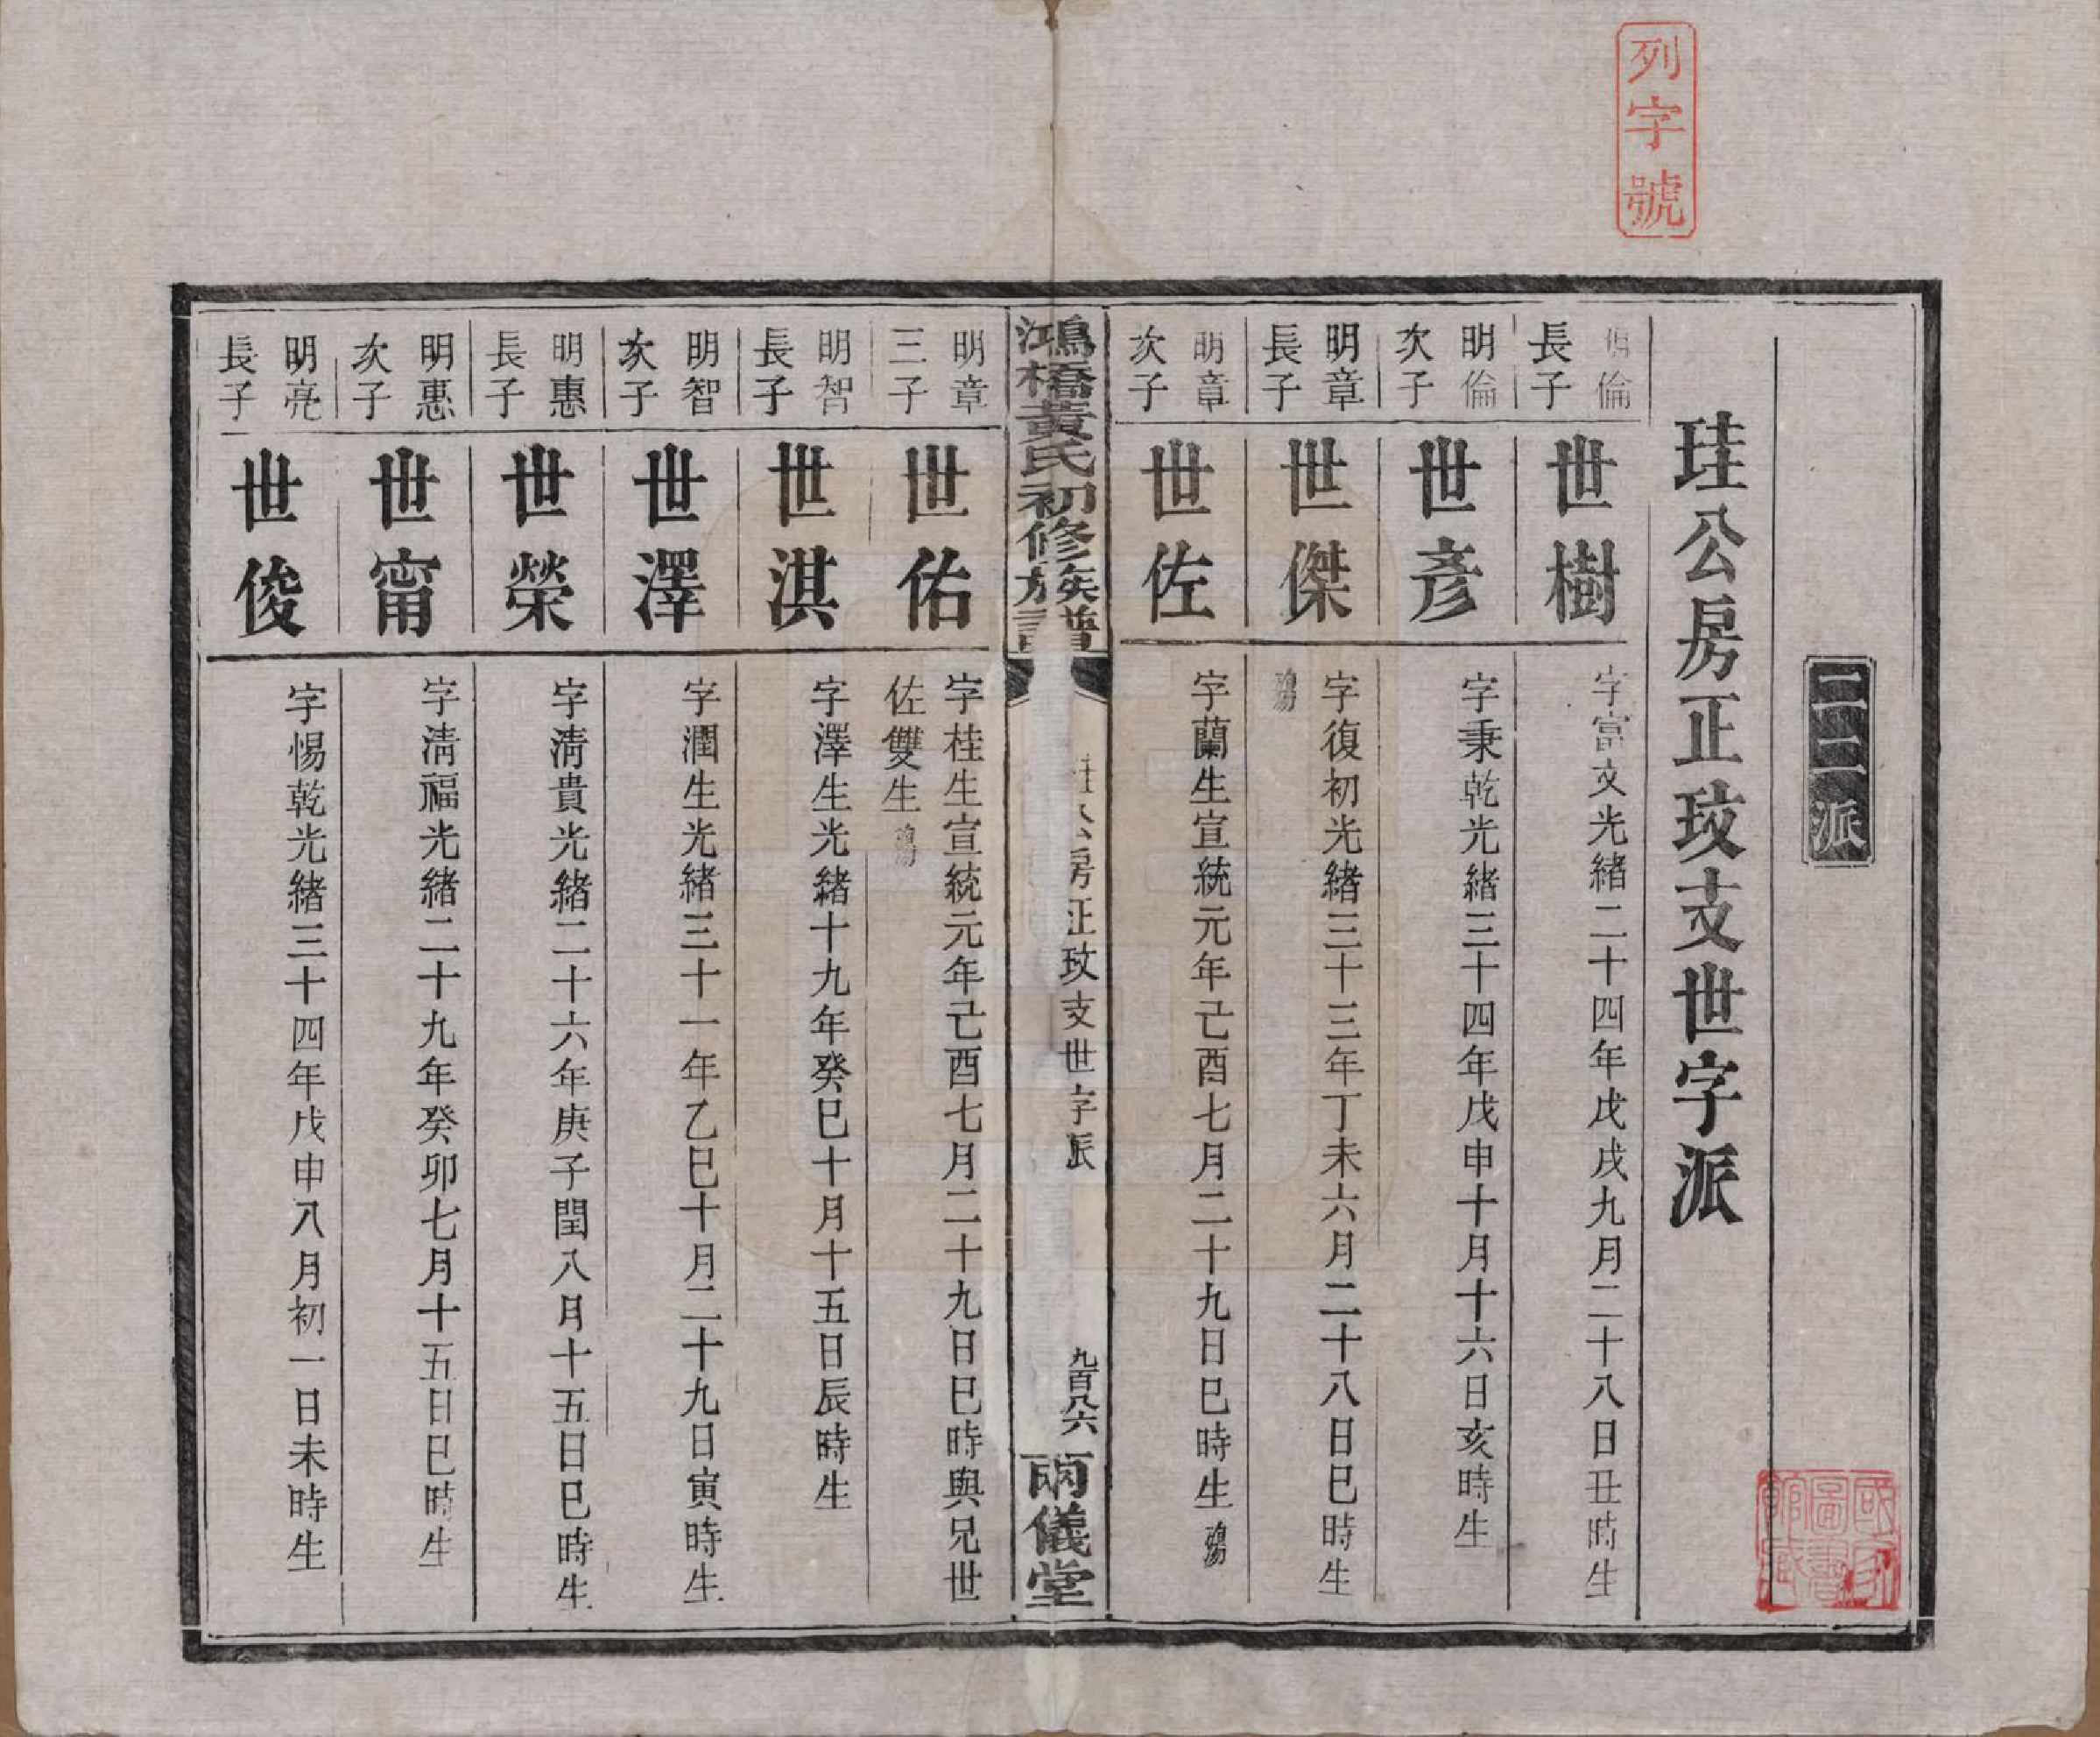 列字號
二二派
珪公房正玫支世字派
明倫
長子
世樹
字富文光緒二十四年戊戌九月二十八日丑時生
明倫
次子
世彥
字秉乾光緒三十四年戊申十月十六日亥時生
明章
長子
世傑
字復初光緒三十三年丁未六月二十八日巳時生
殤
明章
次子
世佐
字蘭生宣統元年己酉七月二十九日巳時生殤
鴻橋黃氏初修族譜
珪公房正玫支世字派
九百八六
兩儀堂
明章
三子
世佑
字桂生宣統元年己酉七月二十九日巳時與兄世
佐雙生殤
明智
長子
世淇
字澤生光緒十九年癸巳十月十五日辰時生
明智
次子
世澤
字潤生光緒三十一年乙巳十月二十九日寅時生
明惠
長子
世榮
字淸貴光緒二十六年庚子閏八月十五日巳時生
明惠
次子
世甯
字淸福光緒二十九年癸卯七月十五日巳時生
明亮
長子
世俊
字惕乾光緒三十四年戊申八月初一日未時生
國家圖書館藏